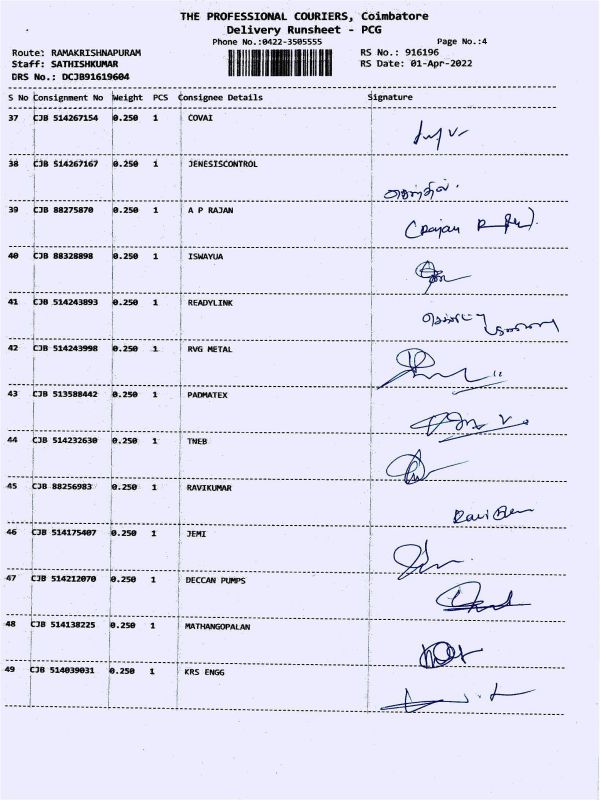 THE PROFESSIONAL COURIERS, Coimbatore
Delivery Runsheet - PCG
Phone No.:0422-3505555 Page No.:4
Route: RAMAKRISHNAPURAM RS No.: 916196
Staff: SATHISHKUMAR RS Date: 01-Apr-2022
DRS No.: DCJB91619604
S No Consignment No Weight PCS Consignee Details Signature
37 CJB 514267154 0.250 1 COVAI
38 CJB 514267167 0.250 1 JENESISCONTROL
39 CJB 88275870 0.250 1 A P RAJAN
(Rajan
40 CJB 88328898 0.250 1 ISWAYUA
41 CJB 514243893 0.250 1 READYLINK
42 CJB 514243998 0.250 1 RVG METAL
43 CJB 513588442 0.250 1 PADMATEX
44 CJB 514232630 0.250 1 TNEB
45 CJB 88256983 0.250 1 RAVIKUMAR
Ravi
46 CJB 514175407 0.250 1 JEMI
47 CJB 514212070 0.250 1 DECCAN PUMPS
48 CJB 514138225 0.250 1 MATHANGOPALAN
49 CJB 514039031 0.250 1 KRS ENGG